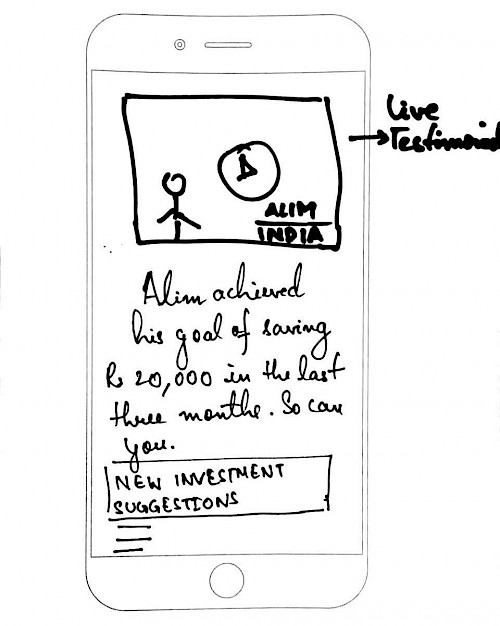 Live
Testimonial
ALIM
INDIA
Alim achieved
his goal of saving
Rs 20,000 in the last
three months. So can
you.
NEW INVESTMENT
SUGGESTIONS